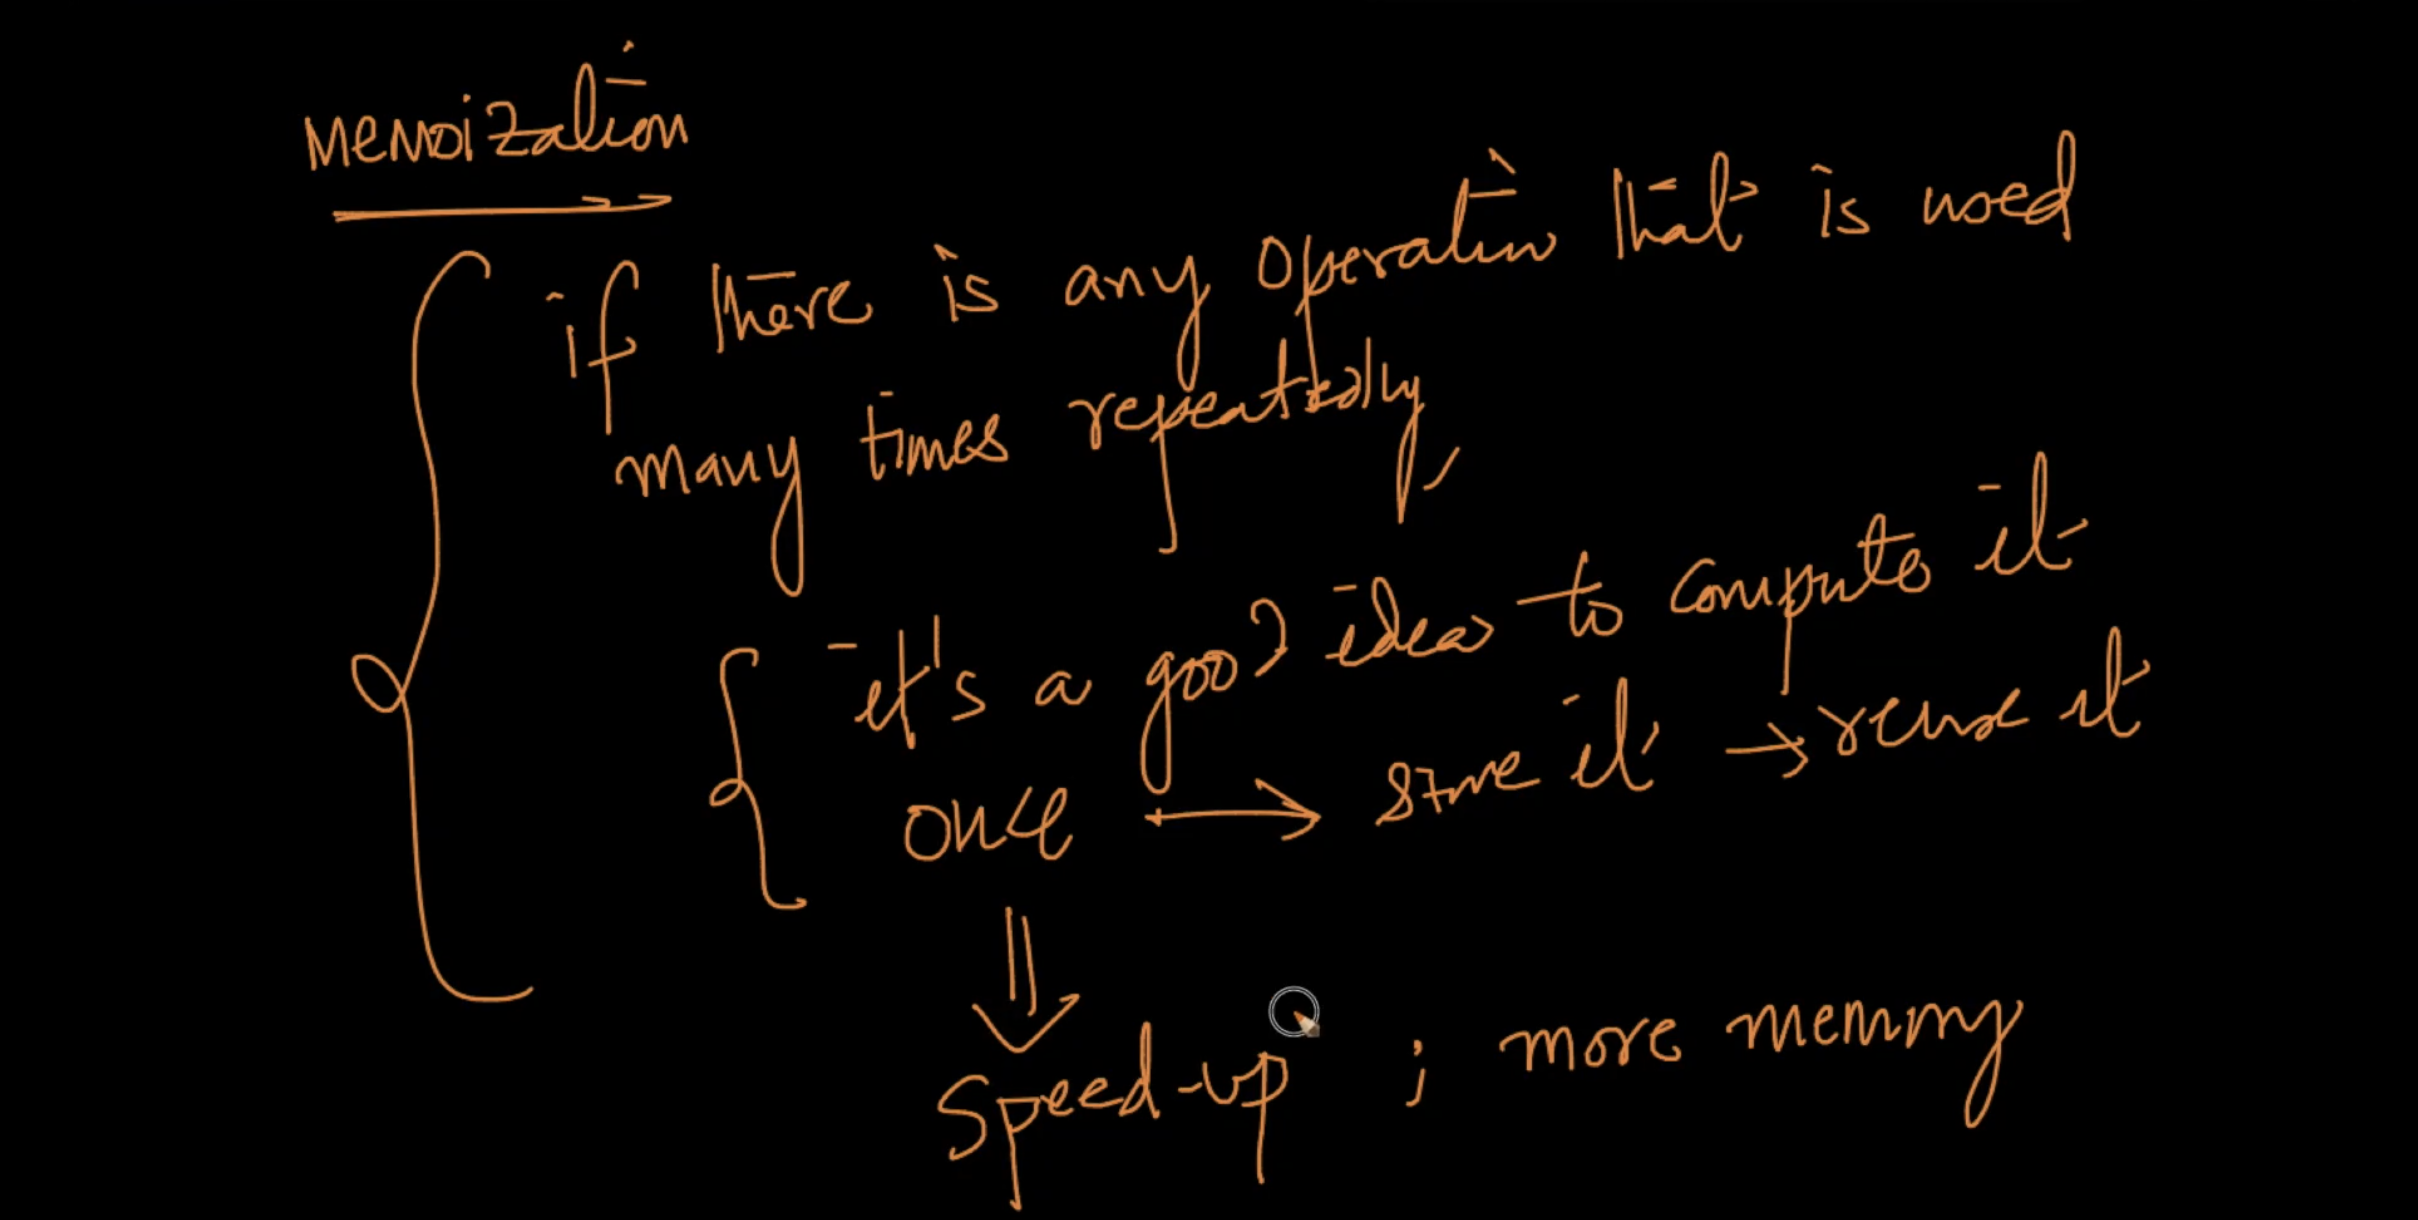 Memoization
if there is any operation that is used
many times repeatedly,
it's a good idea to compute it
once → store it → reuse it
Speed-up ; more memory